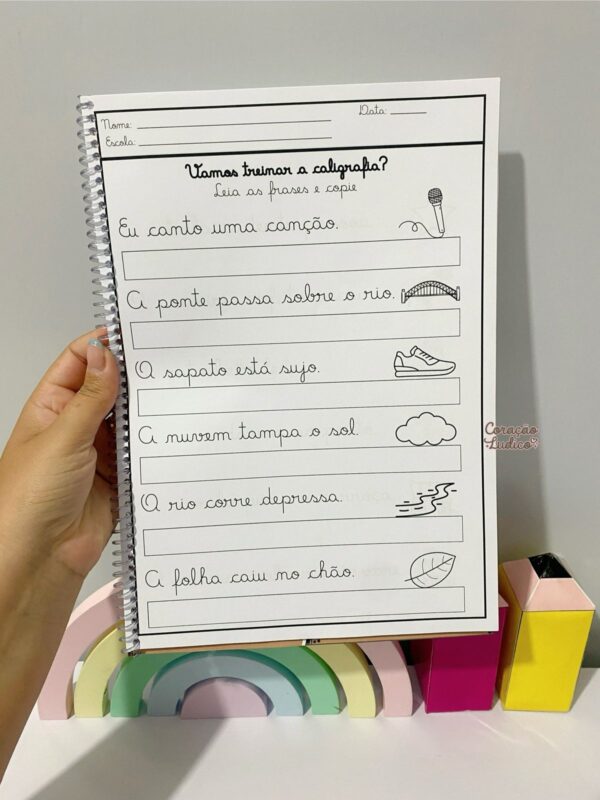 Data: ______
Nome: ______________________
Escola: ______________________
Vamos treinar a caligrafia?
Leia as frases e copie
Eu canto uma canção.
A ponte passa sobre o rio.
O sapato está sujo.
A nuvem tampa o sol.
O rio corre depressa.
A folha caiu no chão.
Coração
Lúdico